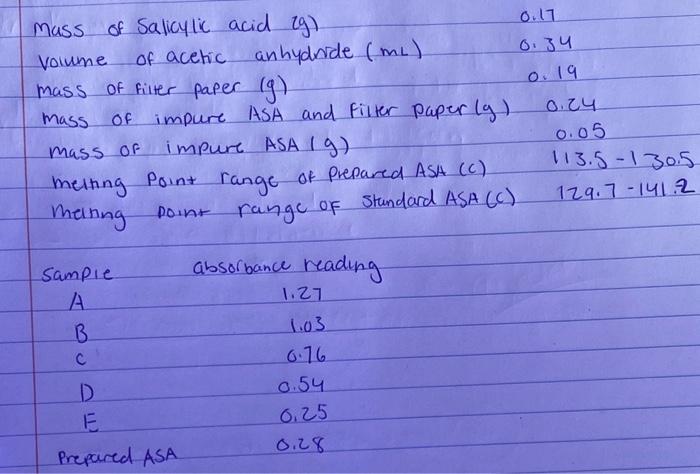 Mass of Salicylic acid (g) 0.17
Volume of acetic anhydride (mL) 0.34
Mass of filter paper (g) 0.19
Mass of impure ASA and filter paper (g) 0.24
Mass of impure ASA (g) 0.05
Melting Point range of Prepared ASA (C) 113.5-130.5
Melting point range of Standard ASA (C) 129.7-141.2
Sample absorbance reading
A 1.27
B 1.03
C 0.76
D 0.54
E 0.25
Prepared ASA 0.28